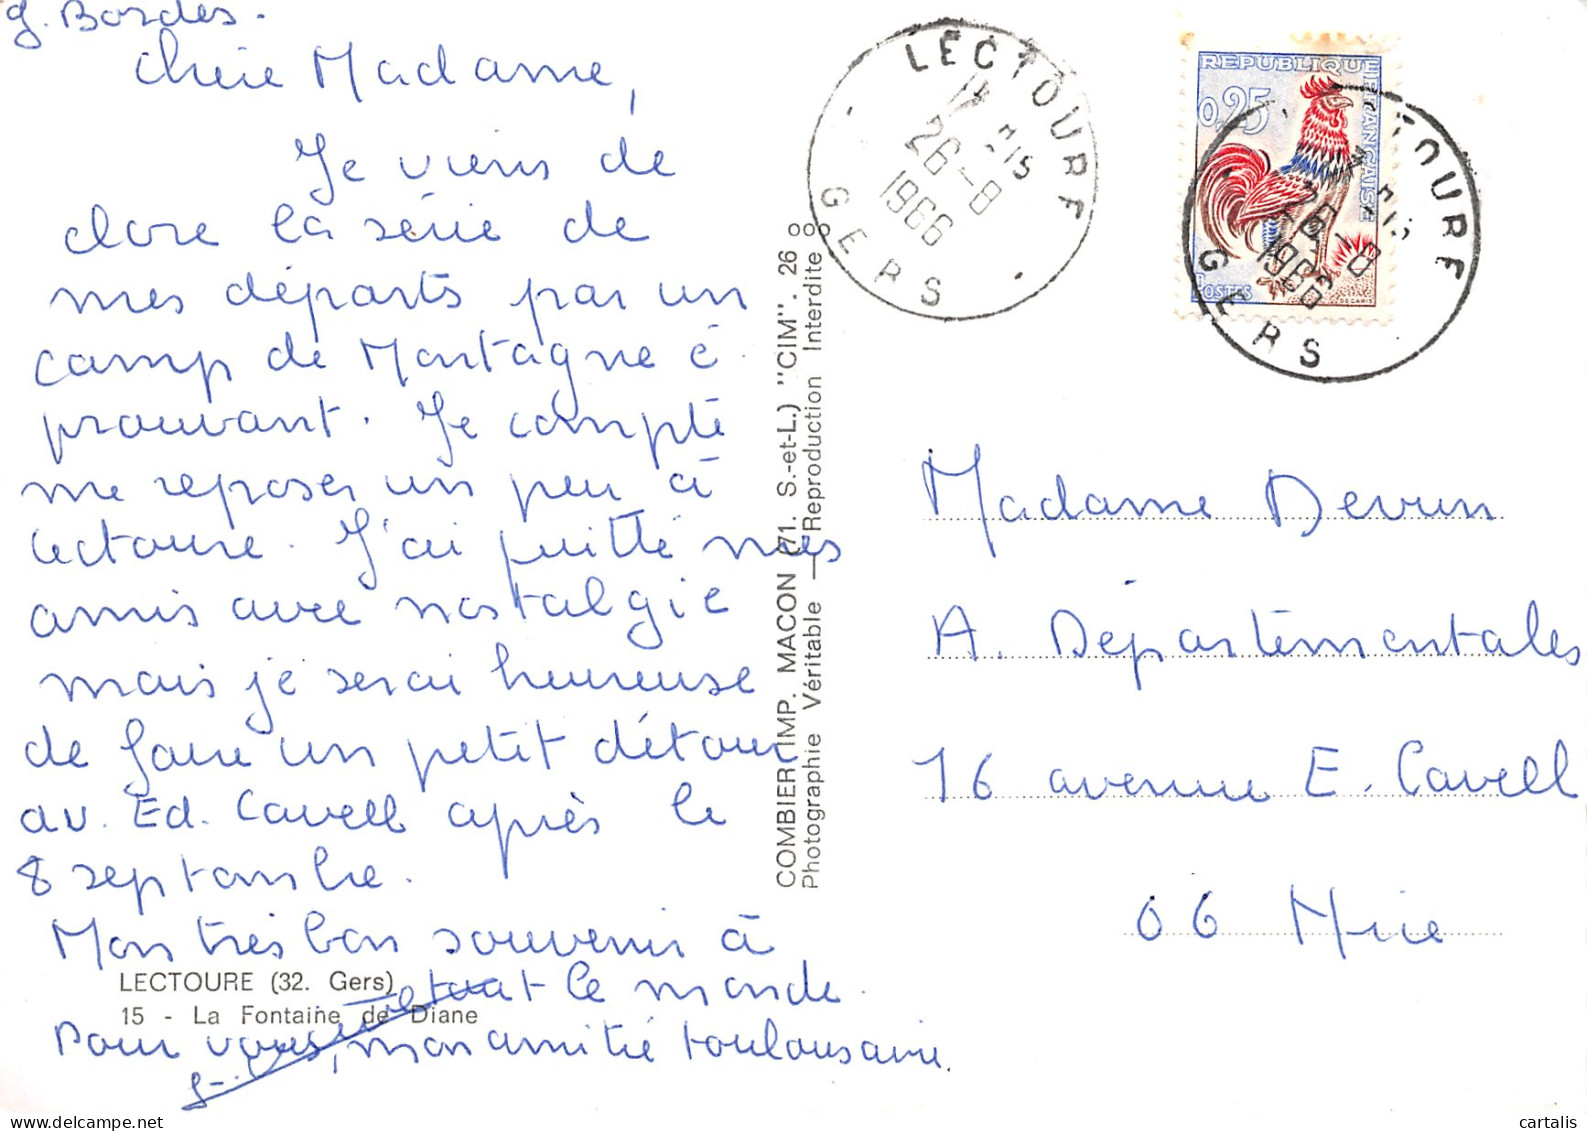 g. Bordes.
chère Madame,
Je viens de
clore la série de
mes départs par un
camp de Montagne é
prouvant. Je compte
me reposer un peu à
Lectoure. J'ai quitté mes
amis avec nostalgie
mais je serai heureuse
de faire un petit détour
av. Ed. Cavell après le
8 septembre.
Mon très bon souvenir à
tout le monde.
Pour vous, mon amitié toulousaine.
LECTOURE (32. Gers)
15 - La Fontaine de Diane
COMBIER IMP. MACON (71. S.-et-L.) "CIM". 26
Photographie Véritable — Reproduction Interdite
LECTOURE
26-8
1966
GERS
REPUBLIQUE FRANÇAISE
0,25
POSTES
DECARIS
LECTOURE
26-8
1966
GERS
Madame Devun
A. Départementales
16 avenue E. Cavell
06 Nice
delcampe.net
cartalis